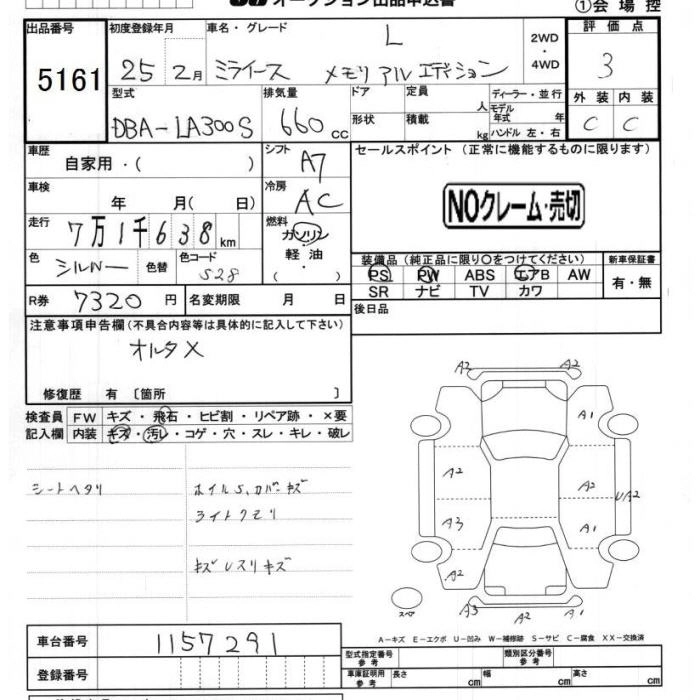 オークション出品申込書
①会場控
出品番号 5161
初度登録年月 25 2月
車名・グレード ミライース L メモリアルエディション
2WD・4WD
評価点 3
型式 DBA-LA300S
排気量 660 cc
ドア 形状
定員 人
積載 kg
ディーラー・並行
モデル年式 年
ハンドル 左・右
外装 内装
C C
車歴 自家用・( )
シフト A7
セールスポイント (正常に機能するものに限ります)
車検 年 月( 日)
冷房 AC
NOクレーム・売切
走行 7万1千638km
燃料 ガソリン・軽油・( )
色 シルバー 色替
色コード S28
装備品 (純正品に限り○をつけてください)
新車保証書
PS PW ABS エアB AW
有・無
SR ナビ TV カワ
R券 7320円
名変期限 月 日
後日品
注意事項申告欄(不具合内容等は具体的に記入して下さい)
オルタ×
修復歴 有 〔箇所 〕
検査員 FW キズ・飛石・ヒビ割・リペア跡・×要
記入欄 内装 キズ・汚レ・コゲ・穴・スレ・キレ・破レ
シートヘタリ
ホイルS、カバーキズ
ライトクモリ
キズレスリキズ
A2 A2
A1
A2 A2 UA2
A3 A1
A2
スペ A3 A2 A1
A-キズ E-エクボ U-凹み W-補修跡 S-サビ C-腐食 XX-交換済
車台番号 1157291
型式指定番号 参考
類別区分番号 参考
登録番号
車庫証明用 参考 長さ cm 幅 cm 高さ cm